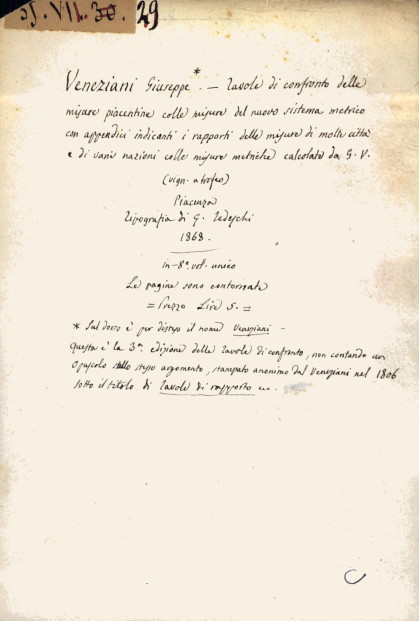 SJ. VII. 30. 29
Veneziani Giuseppe*. — Tavole di confronto delle
misure piacentine colle misure del nuovo sistema metrico
con appendici indicanti i rapporti delle misure di molte città
e di varie nazioni colle misure metriche calcolato da G. V.
(vign. a trofeo)
Piacenza
Tipografia di G. Tedeschi
1868.
in-8°. vol. unico
Le pagine sono contornate
= Prezzo Lire 5. =
* Sul dorso è per
il nome Veneziani –
Questa è la 3ª. edizione delle Tavole di confronto, non contando un
opuscolo sullo stesso argomento, stampato anonimo dal Veneziani nel 1806
sotto il titolo di Tavole di rapporto